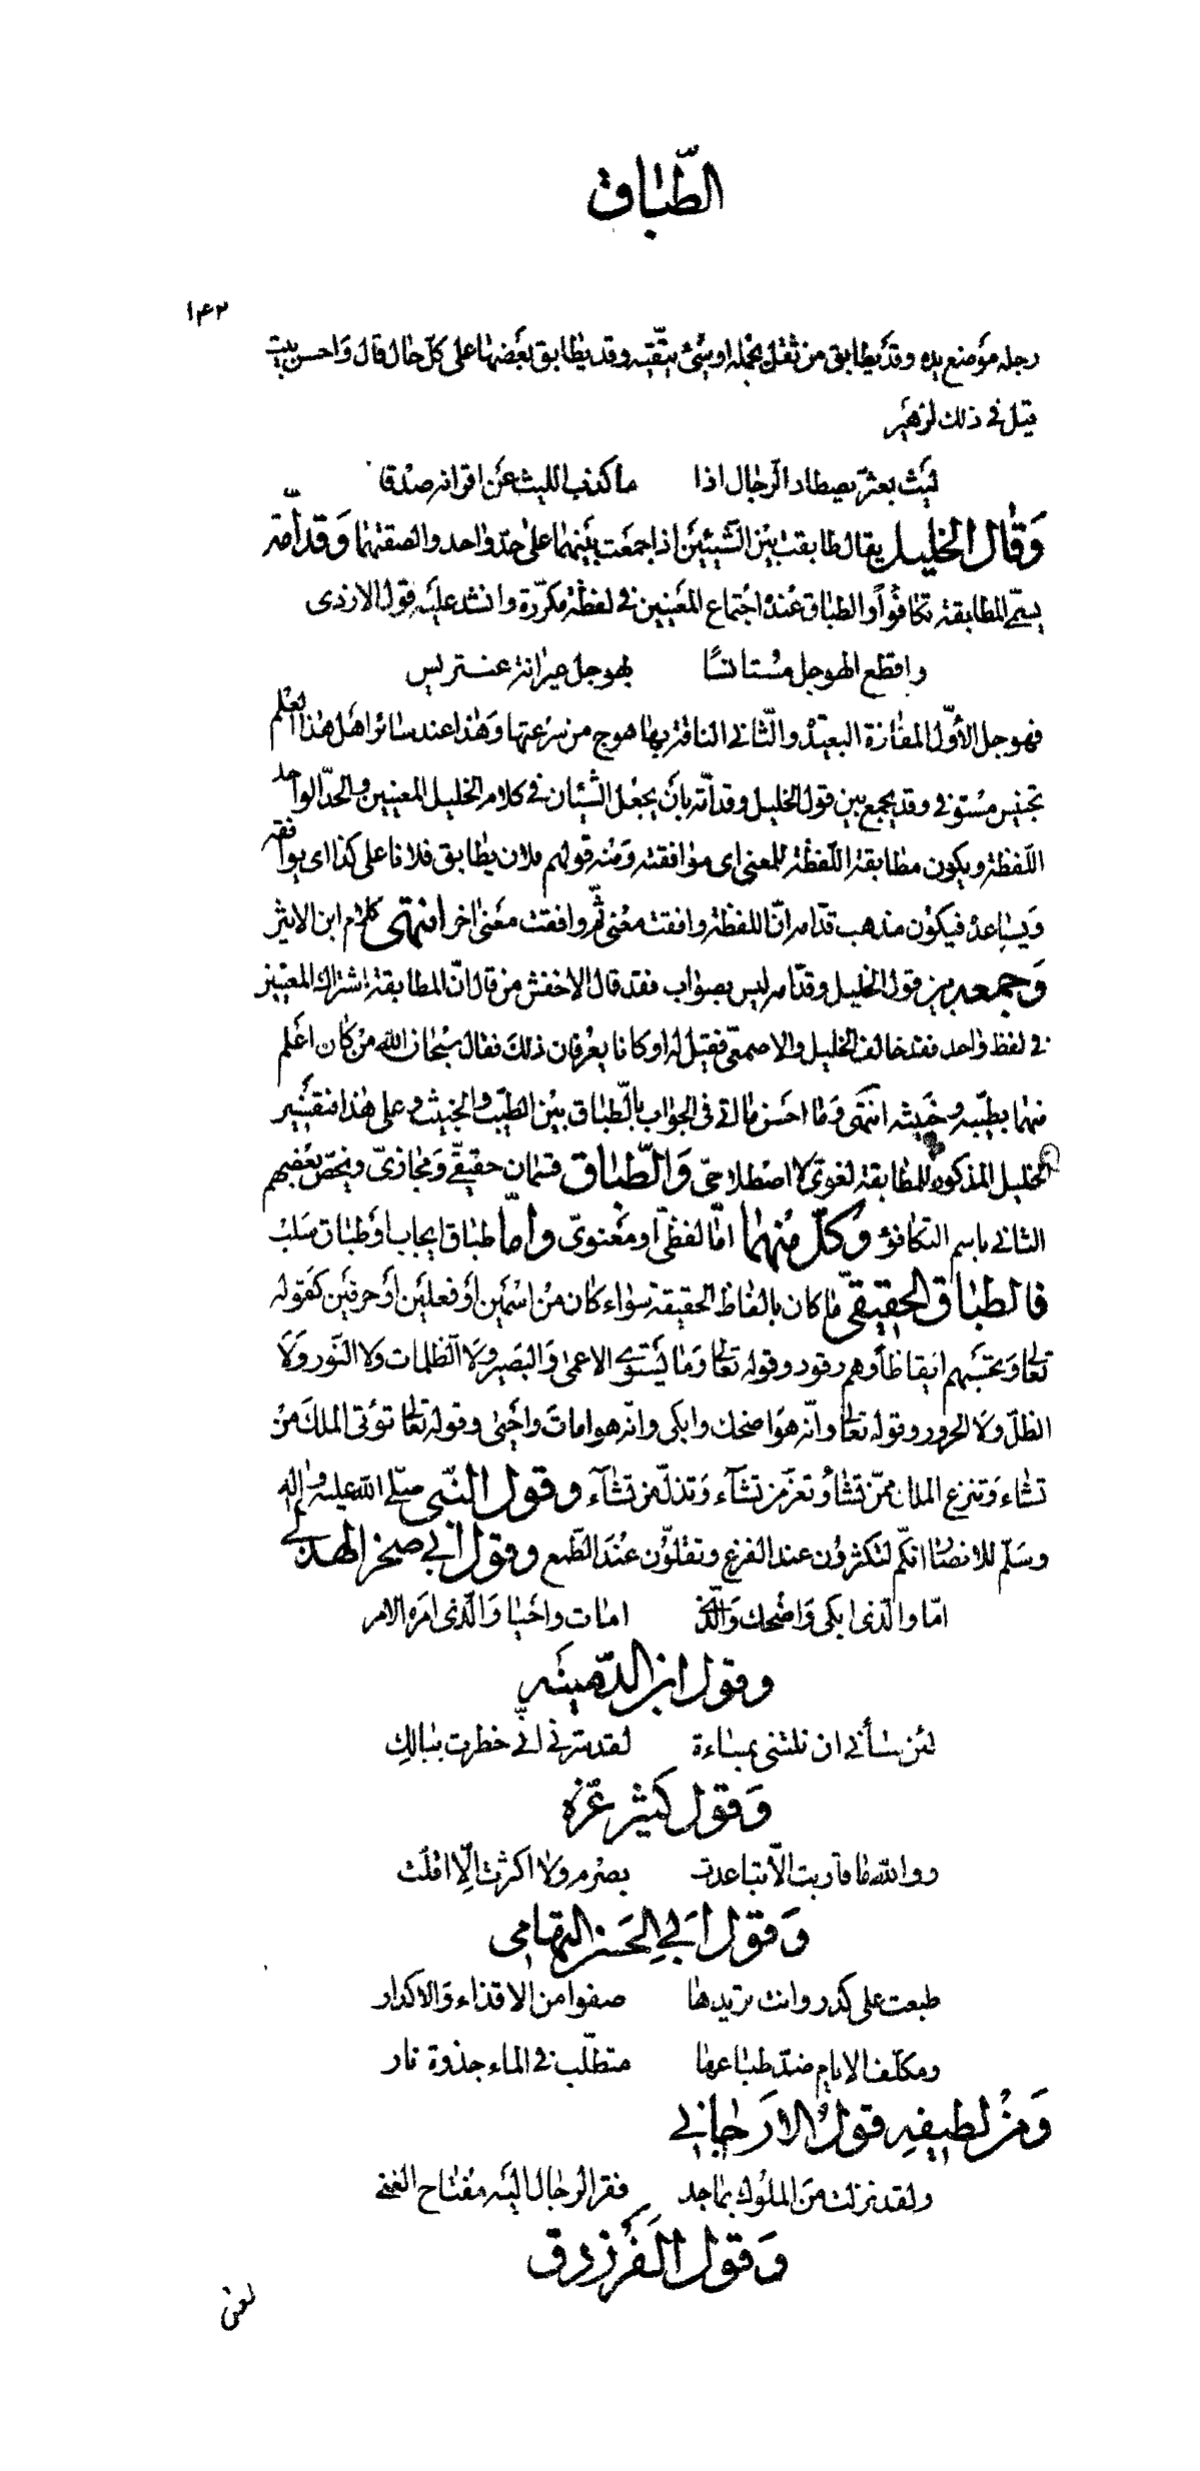 الطّباق
١٤٢
رجله موضع يده وقد يطابق من ثقل يحمله او شئ يتّقيه وقد يطابق بعضها على كلّ حال قال واحسن بيت
قيل فى ذلك لزهير
ليث بعثّر يصطاد الرجال اذا ما كذب الليث عن اقرانه صدقا
وقال الخليل يقال طابقت بين الشيئين اذا جمعت بينهما على حدّ واحد والصقتهما وقدامة
يسمّى المطابقة تكافؤاً والطباق عنده اجتماع المعنيين فى لفظة مكرّرة وانشد عليه قول الازدى
واقطع الهوجل مستانسًا بهوجل عيرانة عنتريس
فهوجل الاوّل المفازة البعيدة والثانى الناقة بها هوج من سرعتها وهذا عند سائر اهل هذا العلم
تجنيس مستوفى وقد يجمع بين قول الخليل وقدامة بان يجعل الشيئان فى كلام الخليل المعنيين والحدّ الواحد
اللفظة ويكون مطابقة اللفظة للمعنى اى موافقته ومنه قولهم فلان يطابق فلانا على كذا اى يوافقه
ويساعده فيكون مذهب قدامه انّ اللفظة وافقت معنى ثمّ وافقت معنى اخر انتهى كلام ابن الاثير
وجمعه بين قول الخليل وقدامه ليس بصواب فقد قال الاخفش من قال انّ المطابقة اشتراك المعنيين
فى لفظ واحد فقد خالف الخليل والاصمعى فقيل له او كانا يعرفان ذلك فقال سبحان الله من كان اعلم
منهما بطيّبه وخبيثه انتهى وما احسن ما اتى فى الجواب بالطّباق بين الطيّب والخبيث وعلى هذا فتفسير
الخليل المذكور للمطابقة لغوىّ لا اصطلاحىّ والطّباق قسمان حقيقىّ ومجازىّ ويخصّ بعضهم
الثانى باسم التكافؤ وكلّ منهما امّا لفظىّ او معنوىّ وامّا طباق ايجاب او طباق سلب
فالطباق الحقيقىّ ما كان بالفاظ الحقيقة سواء كان من اسمين او فعلين او حرفين كقوله
تعالى وتحسبهم ايقاظا وهم رقود وقوله تعالى وما يستوى الاعمى والبصير ولا الظلمات ولا النّور ولا
الظلّ ولا الحرور وقوله تعالى وانّه هو اضحك وابكى وانّه هو امات واحيى وقوله تعالى تؤتى الملك من
تشاء وتنزع الملك ممّن تشاء وتعزّ من تشآء وتذلّ من تشآء وقول النّبى صلّى الله عليه واله
وسلّم للانصار انكّم لتكثرون عند الفزع وتقلّون عند الطّمع وقول ابى صخر الهذلى
امّا والّذى ابكى واضحك والّذى امات واحيا والّذى امره الامر
وقول ابن الدّمينه
لئن سائنى ان نلتنى بمساءة لقد سرّنى انّى خطرت ببالك
وقول كثير عزّه
ووالله ما قاربت الّا تباعدت بصرم ولا اكثرت الّا اقلّت
وقول ابى الحسن التهامى
طبعت على كدر وانت تريدها صفوا من الاقذاء والاكدار
ومكلّف الايام ضدّ طباعها متطلّب فى الماء جذوة نار
ومن لطيفه قول الارجانى
ولقد نزلت من الملوك بماجد فقر الرجال اليه مفتاح الغنى
وقول الفرزدق
لعن